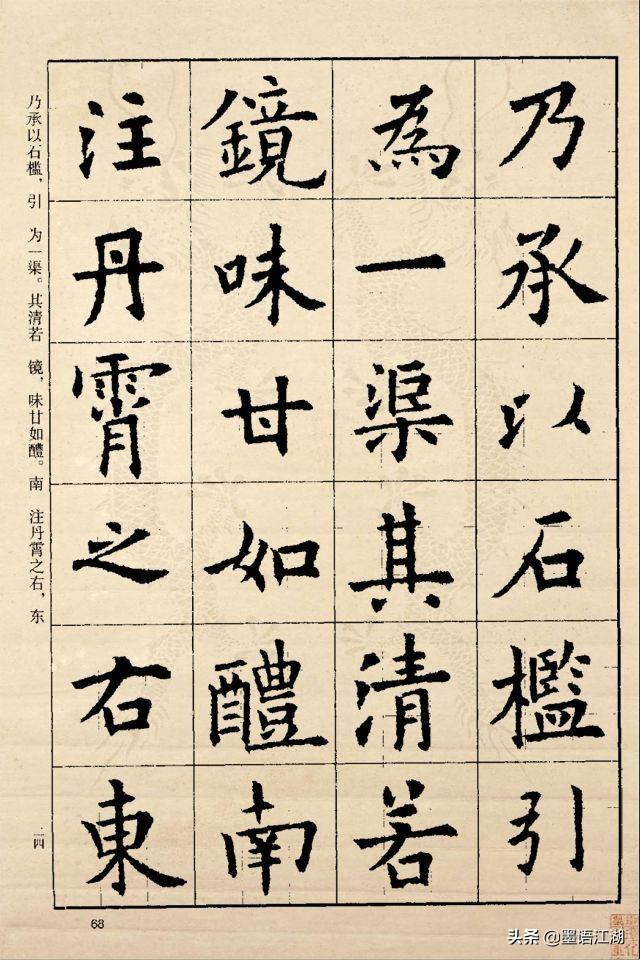 乃承以石檻引
為一渠其清若
鏡味甘如醴南
注丹霄之右東
乃承以石槛，引　为一渠。其清若　镜，味甘如醴。南　注丹霄之右，东
一四
68
头条 @墨语江湖